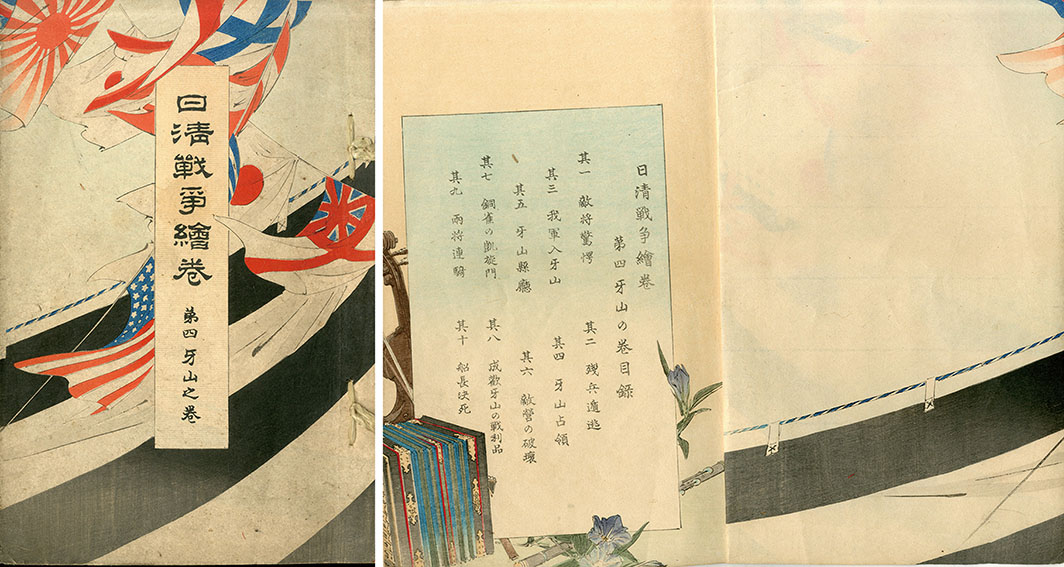 日清戰爭繪卷
第四 牙山之卷
日清戰争繪卷
第四牙山の卷目錄
其一 敵將驚愕
其二 残兵遁逃
其三 我軍入牙山
其四 牙山占領
其五 牙山縣廳
其六 敵營の破壞
其七 銅雀の凱旋門
其八 成歡牙山の戰利品
其九 兩将連騎
其十 船長决死